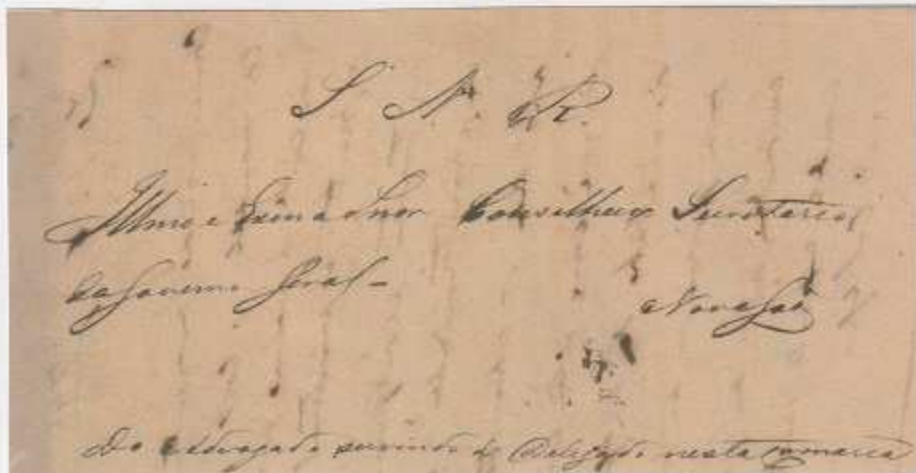 S. N. R.
Illmo e Exmo Snor Conselheiro Secretario
do Governo Geral -
Nova Goa
Do Advogado servindo de Delegado nesta comarca